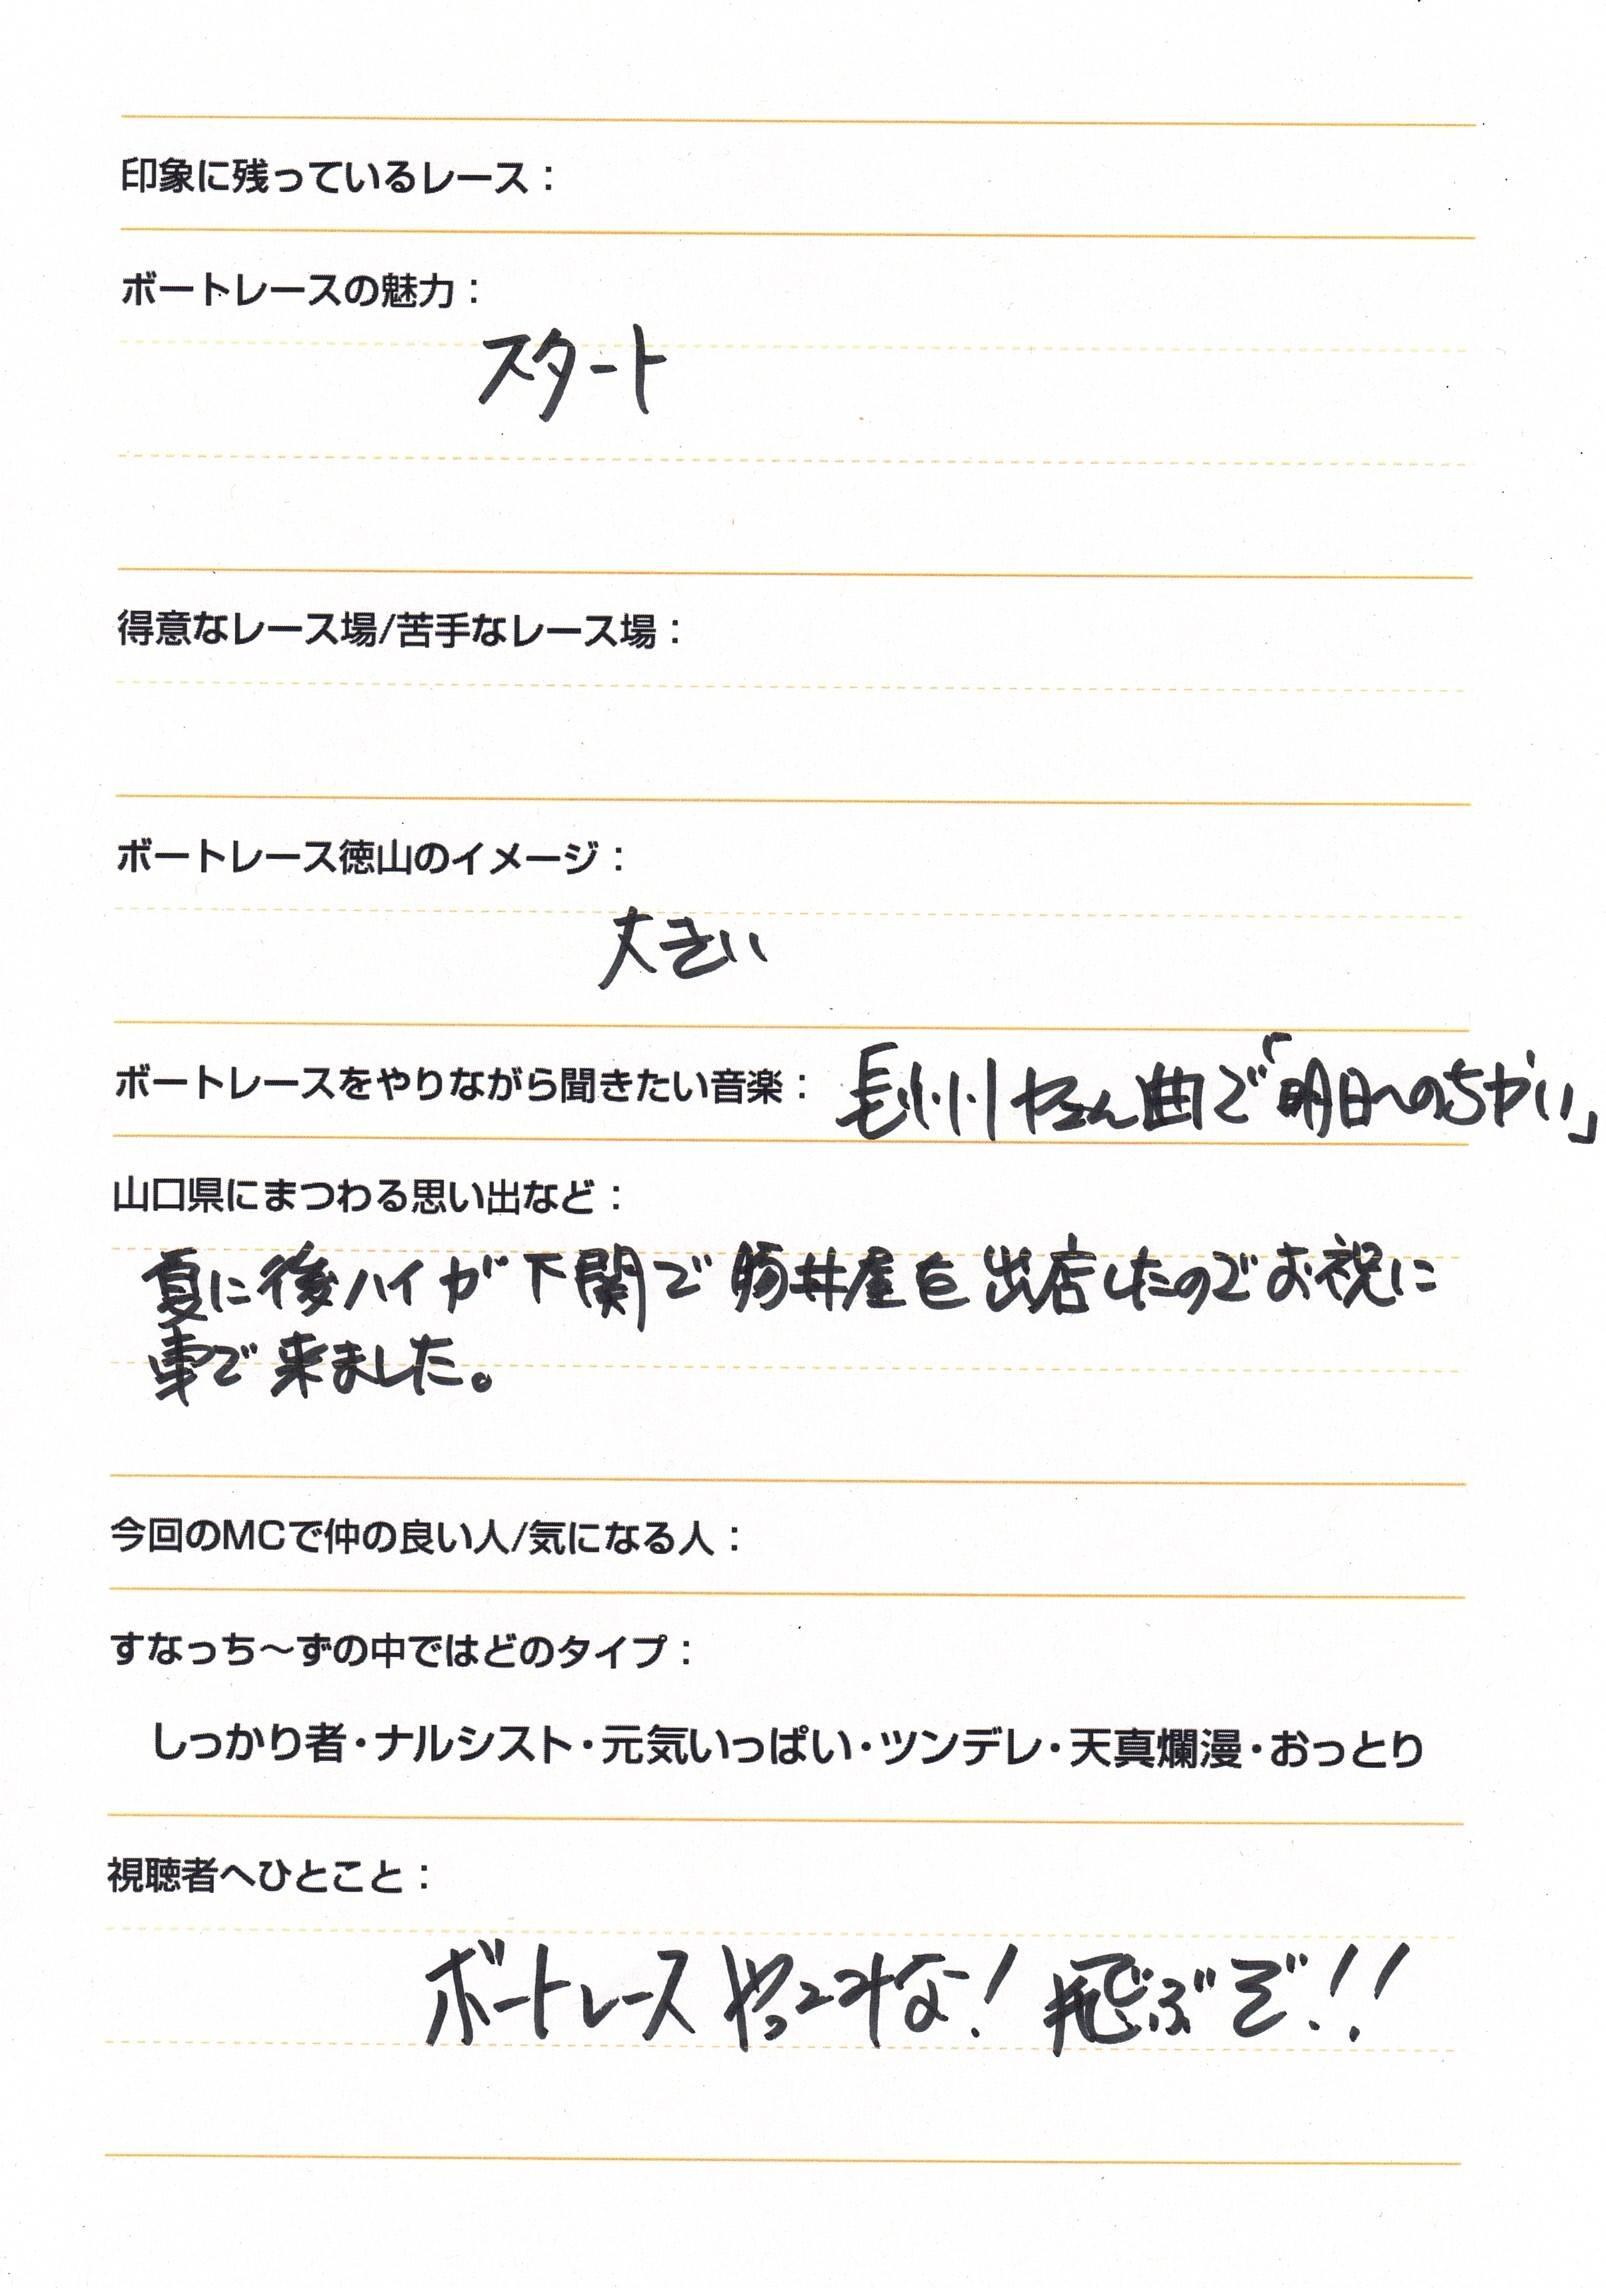 印象に残っているレース：
ボートレースの魅力：
スタート
得意なレース場/苦手なレース場：
ボートレース徳山のイメージ：
大きい
ボートレースをやりながら聞きたい音楽： 曲で「明日へのちかい」
山口県にまつわる思い出など：
夏に後ハイが下関で豚丼屋を出店したのでお祝に
車で来ました。
今回のMCで仲の良い人/気になる人：
すなっち～ずの中ではどのタイプ：
しっかり者・ナルシスト・元気いっぱい・ツンデレ・天真爛漫・おっとり
視聴者へひとこと：
ボートレースやってみな！飛ぶぞ！！